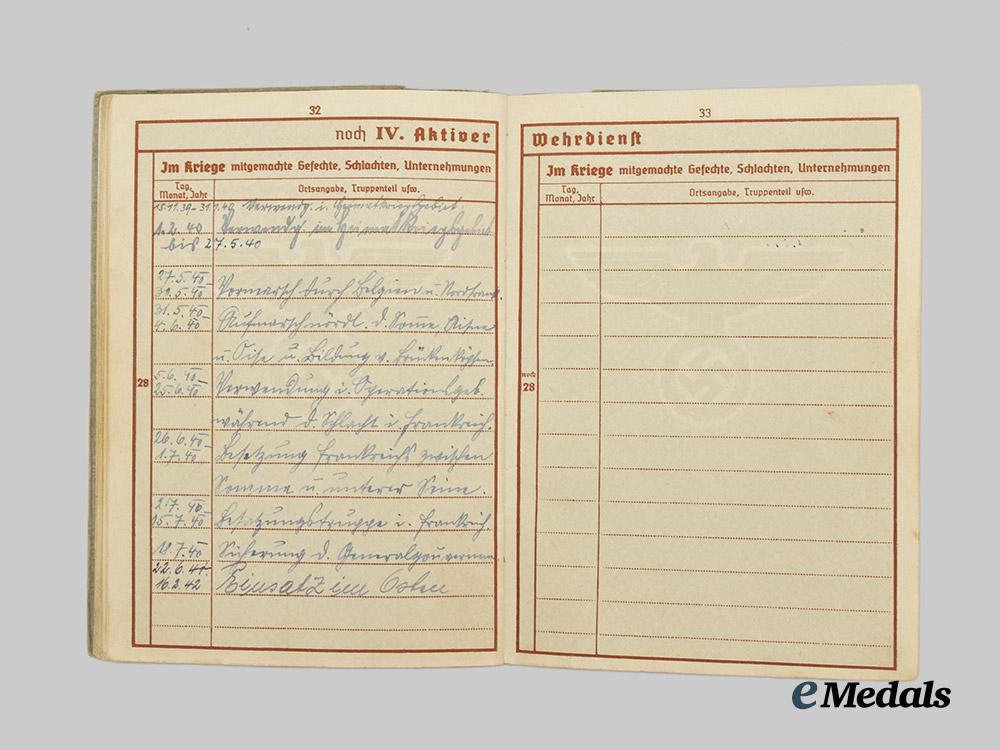 32
noch IV. Aktiver
Im Kriege mitgemachte Gefechte, Schlachten, Unternehmungen
Tag, Monat, Jahr
Ortsangabe, Truppenteil usw.
15.11.39-31.1.40 Verwendg. i. Heimatkriegsgebiet
1.2.40 Verwendg. im Heimatkriegsgebiet
bis 27.5.40
27.5.40- Vormarsch durch Belgien u. Nordfrank.
31.5.40- Aufmarsch nördl. d. Somme, Aisne
4.6.40
u. Oise u. Bildung v. Brückenköpfen.
28
5.6.40- Verwendung i. Operationsgeb.
25.6.40
während d. Schlacht i. Frankreich.
26.6.40- Besetzung Frankreichs zwischen
1.7.40
Somme u. unterer Seine.
2.7.40- Besatzungstruppe i. Frankreich.
15.7.40
18.7.40 Sicherung d. Generalgouvernem
22.6.41- Einsatz im Osten
16.2.42
33
Wehrdienst
Im Kriege mitgemachte Gefechte, Schlachten, Unternehmungen
Tag, Monat, Jahr
Ortsangabe, Truppenteil usw.
noch
28
eMedals